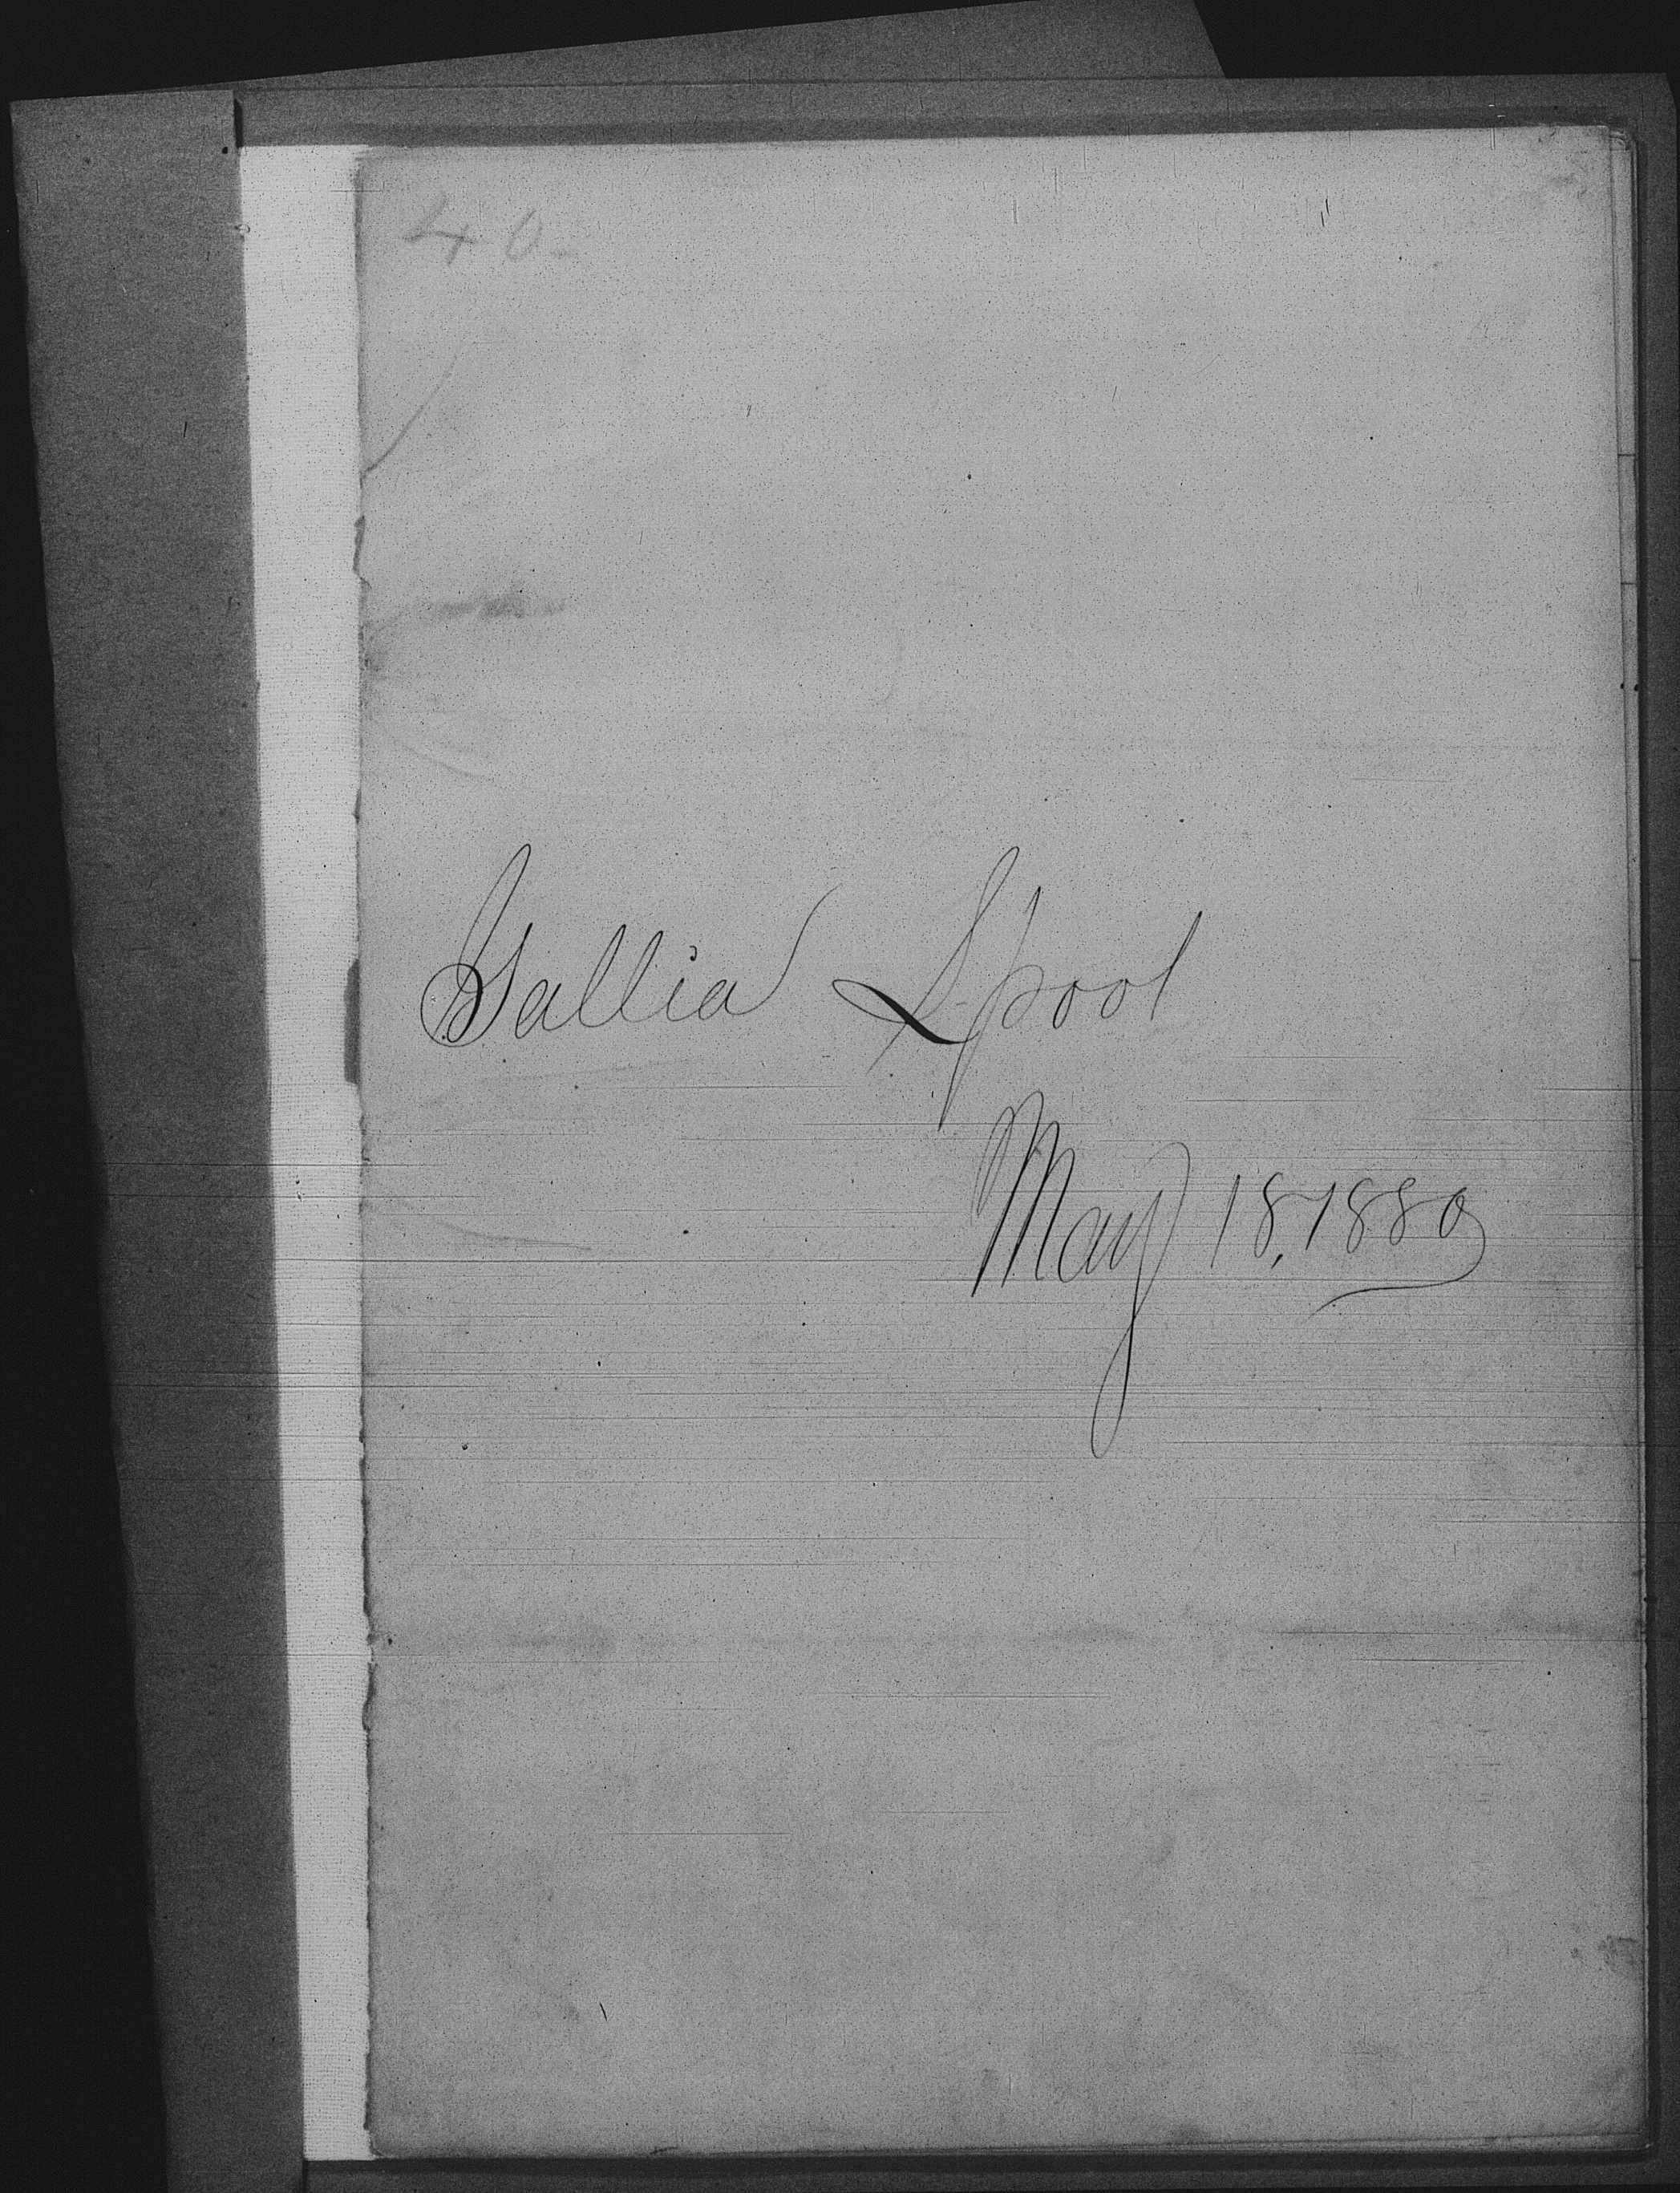 40-
Gallia L'pool
May 18, 1880